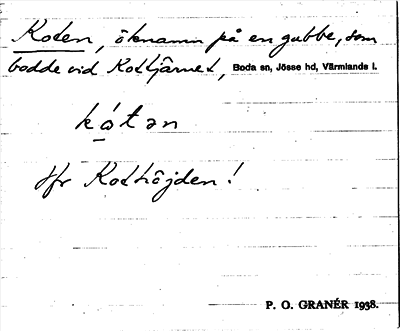 Koten, öknamn på en gubbe, som
bodde vid Kottjärnet, Boda sn, Jösse hd, Värmlands l.
kɷ́tən
Jfr Kothöjden!
P. O. GRANÉR 1938.